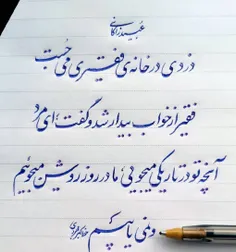 عبید زاکانی
دزدی در خانه‌ی فقیری می جست
فقیر از خواب بیدار شد و گفت ای مرد
آنچه تو در تاریکی میجویی ما در روز روشن میجوئیم
و نمی یابیم